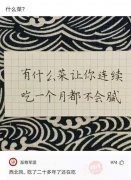 什么菜?
有什么菜让你连续
吃一个月都不会腻
西北风，吃了二十多年了还在吃